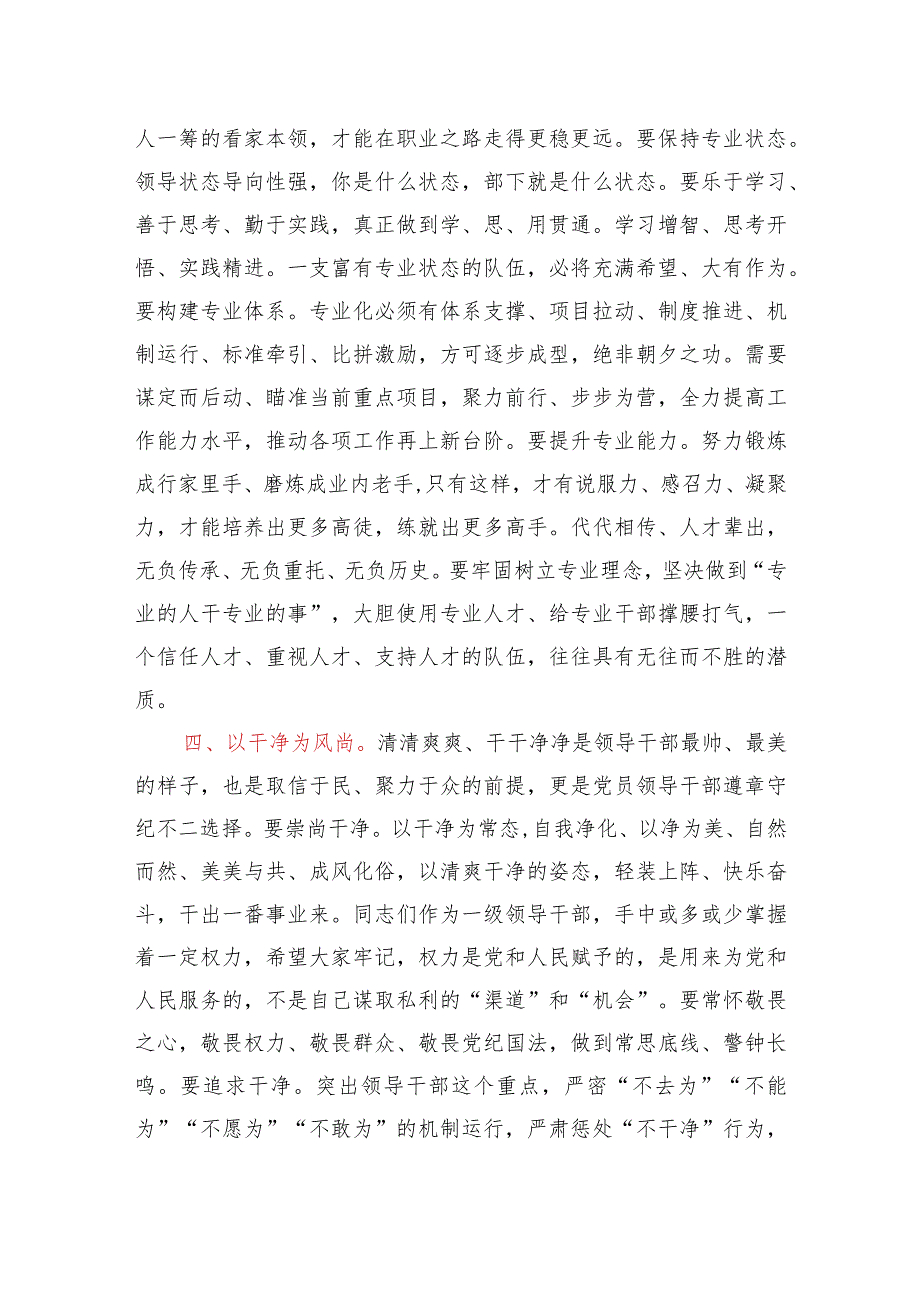 人一筹的看家本领，才能在职业之路走得更稳更远。要保持专业状态。
领导状态导向性强，你是什么状态，部下就是什么状态。要乐于学习、
善于思考、勤于实践，真正做到学、思、用贯通。学习增智、思考开
悟、实践精进。一支富有专业状态的队伍，必将充满希望、大有作为。
要构建专业体系。专业化必须有体系支撑、项目拉动、制度推进、机
制运行、标准牵引、比拼激励，方可逐步成型，绝非朝夕之功。需要
谋定而后动、瞄准当前重点项目，聚力前行、步步为营，全力提高工
作能力水平，推动各项工作再上新台阶。要提升专业能力。努力锻炼
成行家里手、磨炼成业内老手,只有这样，才有说服力、感召力、凝聚
力，才能培养出更多高徒，练就出更多高手。代代相传、人才辈出，
无负传承、无负重托、无负历史。要牢固树立专业理念，坚决做到“专
业的人干专业的事”，大胆使用专业人才、给专业干部撑腰打气，一
个信任人才、重视人才、支持人才的队伍，往往具有无往而不胜的潜
质。
四、以干净为风尚。清清爽爽、干干净净是领导干部最帅、最美
的样子，也是取信于民、聚力于众的前提，更是党员领导干部遵章守
纪不二选择。要崇尚干净。以干净为常态,自我净化、以净为美、自然
而然、美美与共、成风化俗，以清爽干净的姿态，轻装上阵、快乐奋
斗，干出一番事业来。同志们作为一级领导干部，手中或多或少掌握
着一定权力，希望大家牢记，权力是党和人民赋予的，是用来为党和
人民服务的，不是自己谋取私利的“渠道”和“机会”。要常怀敬畏
之心，敬畏权力、敬畏群众、敬畏党纪国法，做到常思底线、警钟长
鸣。要追求干净。突出领导干部这个重点，严密“不去为”“不能
为”“不愿为”“不敢为”的机制运行，严肃惩处“不干净”行为，